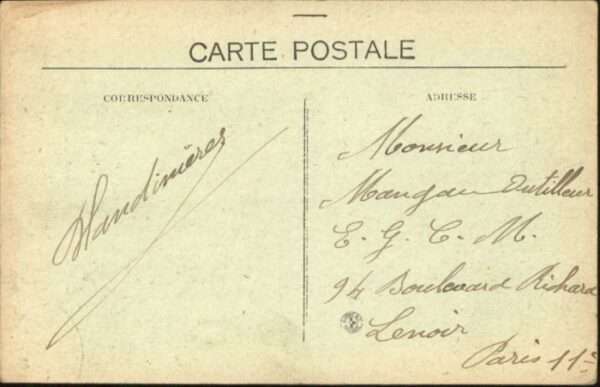 CARTE POSTALE
CORRESPONDANCE
ADRESSE
Monsieur
Outilleur
E. G. C. M.
94 Boulevard Richard
Lenoir
Paris 11e